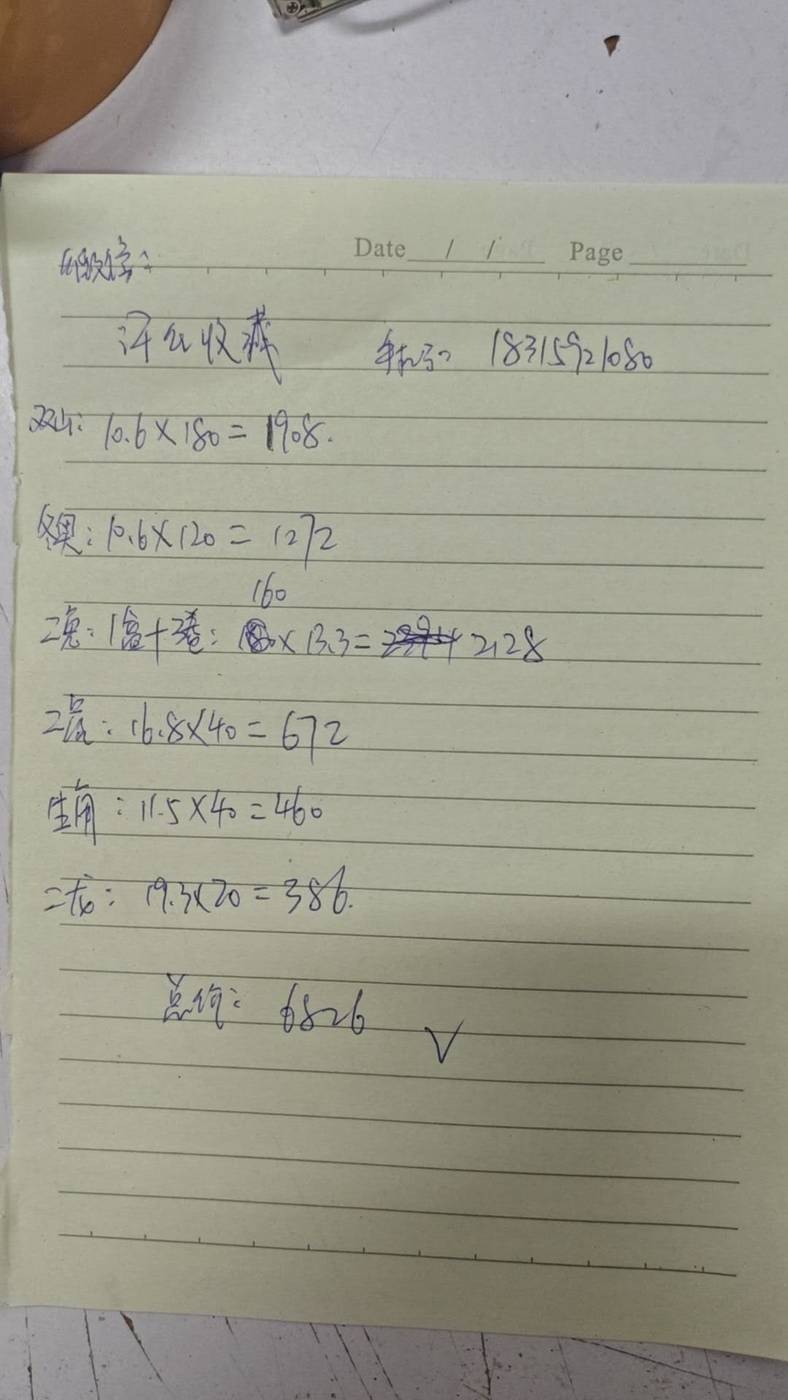 Date / / Page
收藏 手机号: 18315921080
双山: 10.6×180=1908.
冬奥: 10.6×120=1272
160
二兔: 1盒+3卷: ×13.3= 2128
二鼠: 16.8×40=672
生肖: 11.5×40=460
二龙: 19.3×20=386.
总价: 6826 √